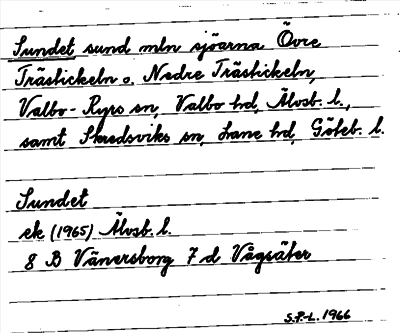 Sundet sund mln sjöarna Övre
Trästickeln o. Nedre Trästickeln,
Valbo-Ryrs sn, Valbo hd, Älvsb. l.,
samt Skredsviks sn, Lane hd, Göteb. l.
Sundet
ek (1965) Älvsb. l.
8 B Vänersborg 7 d Vågsäter
S.P-L. 1966